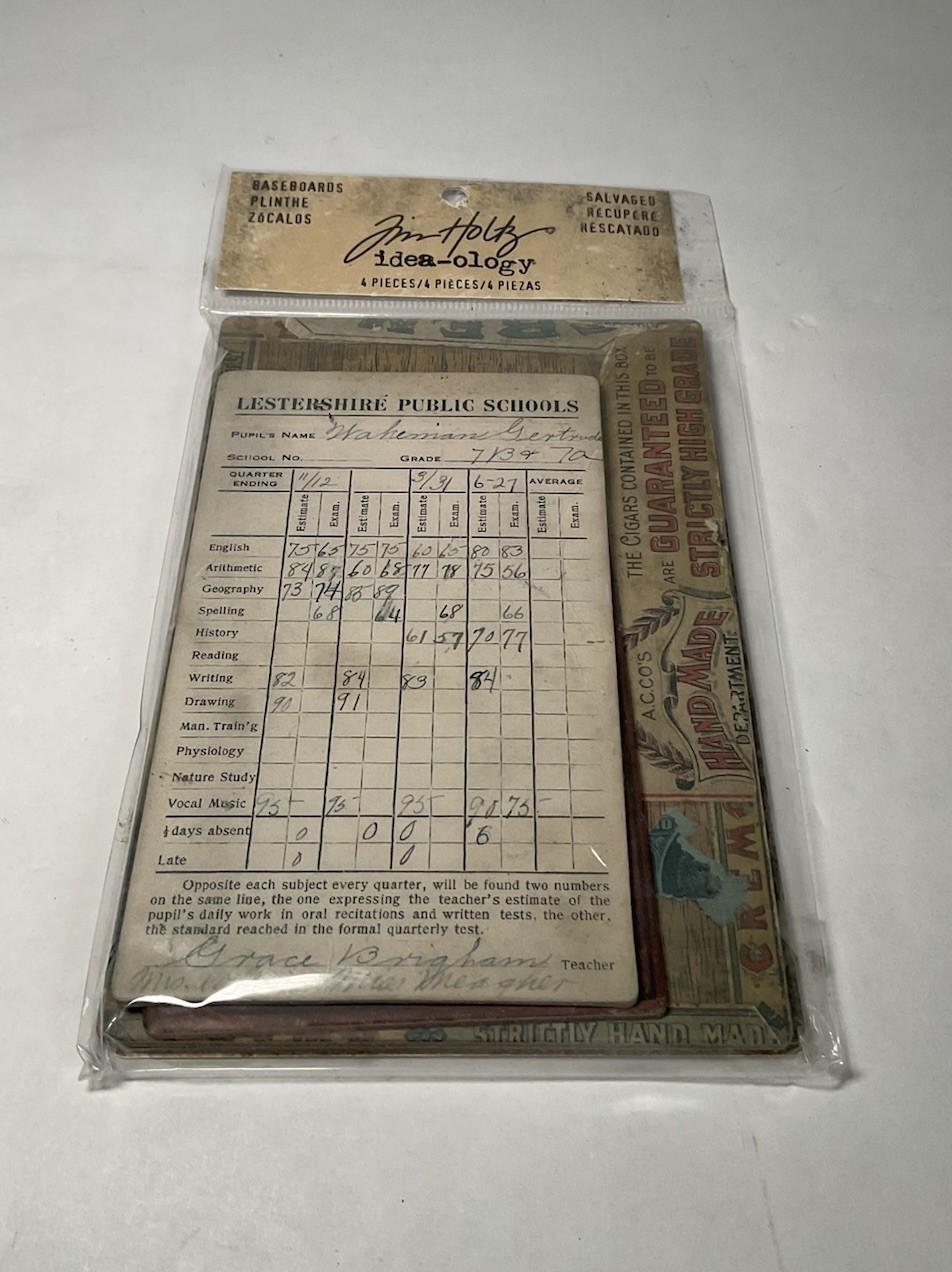 BASEBOARDS
PLINTHE
ZÓCALOS
SALVAGED
RÉCUPÉRÉ
RESCATADO
Tim Holtz
idea-ology
4 PIECES/4 PIÈCES/4 PIEZAS
LESTERSHIRE PUBLIC SCHOOLS
PUPIL'S NAME Wakeman Gertrude
SCHOOL NO. GRADE 7B & 7a
QUARTER ENDING 11/12 3/31 6-27 AVERAGE
Estimate Exam. Estimate Exam. Estimate Exam. Estimate Exam. Estimate Exam.
English 75 65 75 75 60 65 80 83
Arithmetic 84 87 60 68 77 78 75 56
Geography 73 74 85 89
Spelling 68 64 68 66
History 61 57 70 77
Reading
Writing 82 84 83 84
Drawing 90 91
Man. Train'g
Physiology
Nature Study
Vocal Music 95 95 95 90 75
½ days absent 0 0 0 6
Late 0 0
Opposite each subject every quarter, will be found two numbers
on the same line, the one expressing the teacher's estimate of the
pupil's daily work in oral recitations and written tests, the other,
the standard reached in the formal quarterly test.
Grace Brigham Teacher
Mrs. Miss Meagher
THE CIGARS CONTAINED IN THIS BOX
ARE GUARANTEED TO BE
STRICTLY HIGH GRADE
A.C.CO'S
HAND MADE
DEPARTMENT.
CREMO
STRICTLY HAND MADE